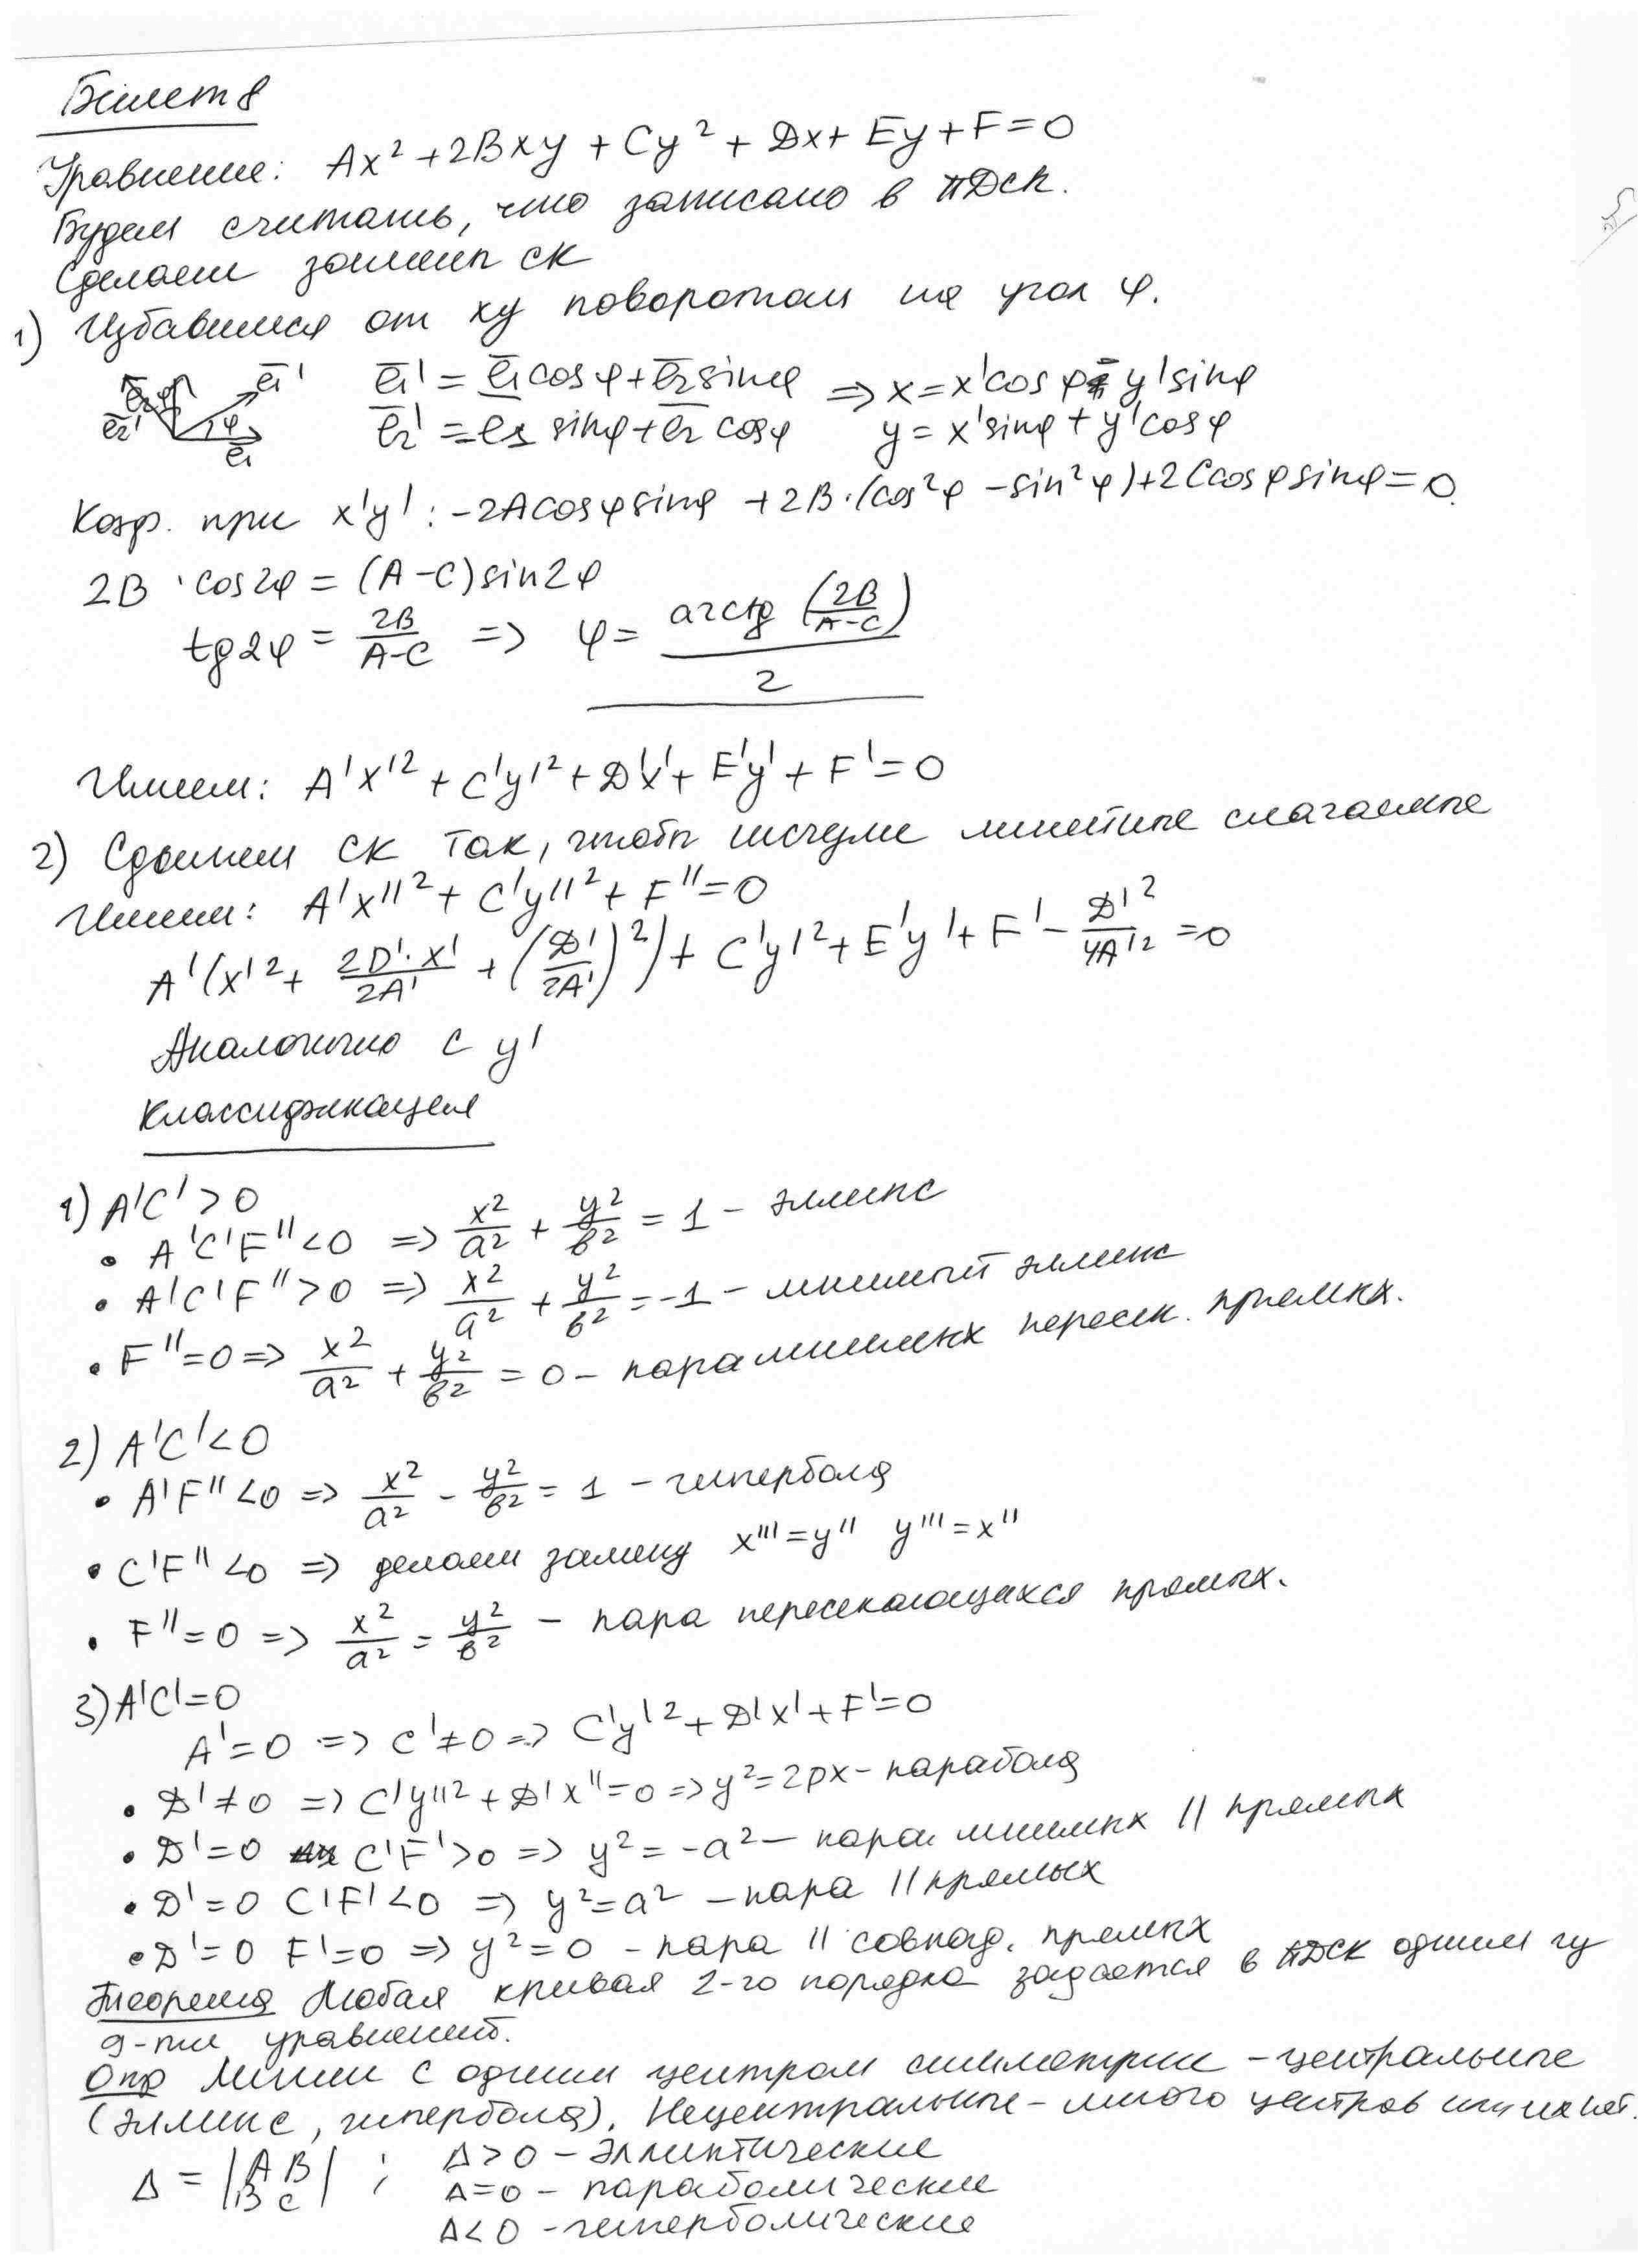 Билет 8
Уравнение: Ax² + 2Bxy + Cy² + Dx + Ey + F = 0
Будем считать, что записано в ПДСК.
Сделаем замены СК
1) Избавимся от xy поворотом на угол φ.
e̅₁' = e̅₁cosφ + e̅₂sinφ ⇒ x = x'cosφ - y'sinφ
e̅₂' = e₁ sinφ + e̅₂ cosφ y = x'sinφ + y'cosφ
e̅₁' e̅₂ φ e̅₂' φ e̅₁
Коэф. при x'y': -2Acosφsinφ + 2B·(cos²φ - sin²φ) + 2Ccosφsinφ = 0.
2B · cos2φ = (A-C)sin2φ
tg2φ = 2B/(A-C) => φ = arctg (2B/(A-C)) / 2
Имеем: A'x'² + C'y'² + D'x' + E'y' + F' = 0
2) Сдвинем СК так, чтобы исчезли линейные слагаемые
Имеем: A'x''² + C'y''² + F'' = 0
A'(x'² + 2D'·x'/2A' + (D'/2A')²) + C'y'² + E'y' + F' - D'²/4A'² = 0
Аналогично с y'
Классификация
1) A'C' > 0
• A'C'F'' < 0 => x²/a² + y²/b² = 1 - эллипс
• A'C'F'' > 0 => x²/a² + y²/b² = -1 - мнимый эллипс
• F'' = 0 => x²/a² + y²/b² = 0 - пара мнимых пересек. прямых.
2) A'C' < 0
• A'F'' < 0 => x²/a² - y²/b² = 1 - гипербола
• C'F'' < 0 => делаем замену x''' = y'' y''' = x''
• F'' = 0 => x²/a² = y²/b² - пара пересекающихся прямых.
3) A'C' = 0
A' = 0 => C' ≠ 0 => C'y'² + D'x' + F' = 0
• D' ≠ 0 => C'y''² + D'x'' = 0 => y² = 2px - парабола
• D' = 0 C'F' > 0 => y² = -a² - пара мнимых || прямых
• D' = 0 C'F' < 0 => y² = a² - пара || прямых
• D' = 0 F' = 0 => y² = 0 - пара || совпад. прямых
Теорема Любая кривая 2-го порядка задается в ПДСК одним из
9-ти уравнений.
Опр Линии с одним центром симметрии - центральные
(эллипс, гипербола). Нецентральные - много центров или их нет.
Δ = |A B| ; Δ > 0 - эллиптические
|B C| Δ = 0 - параболические
Δ < 0 - гиперболические